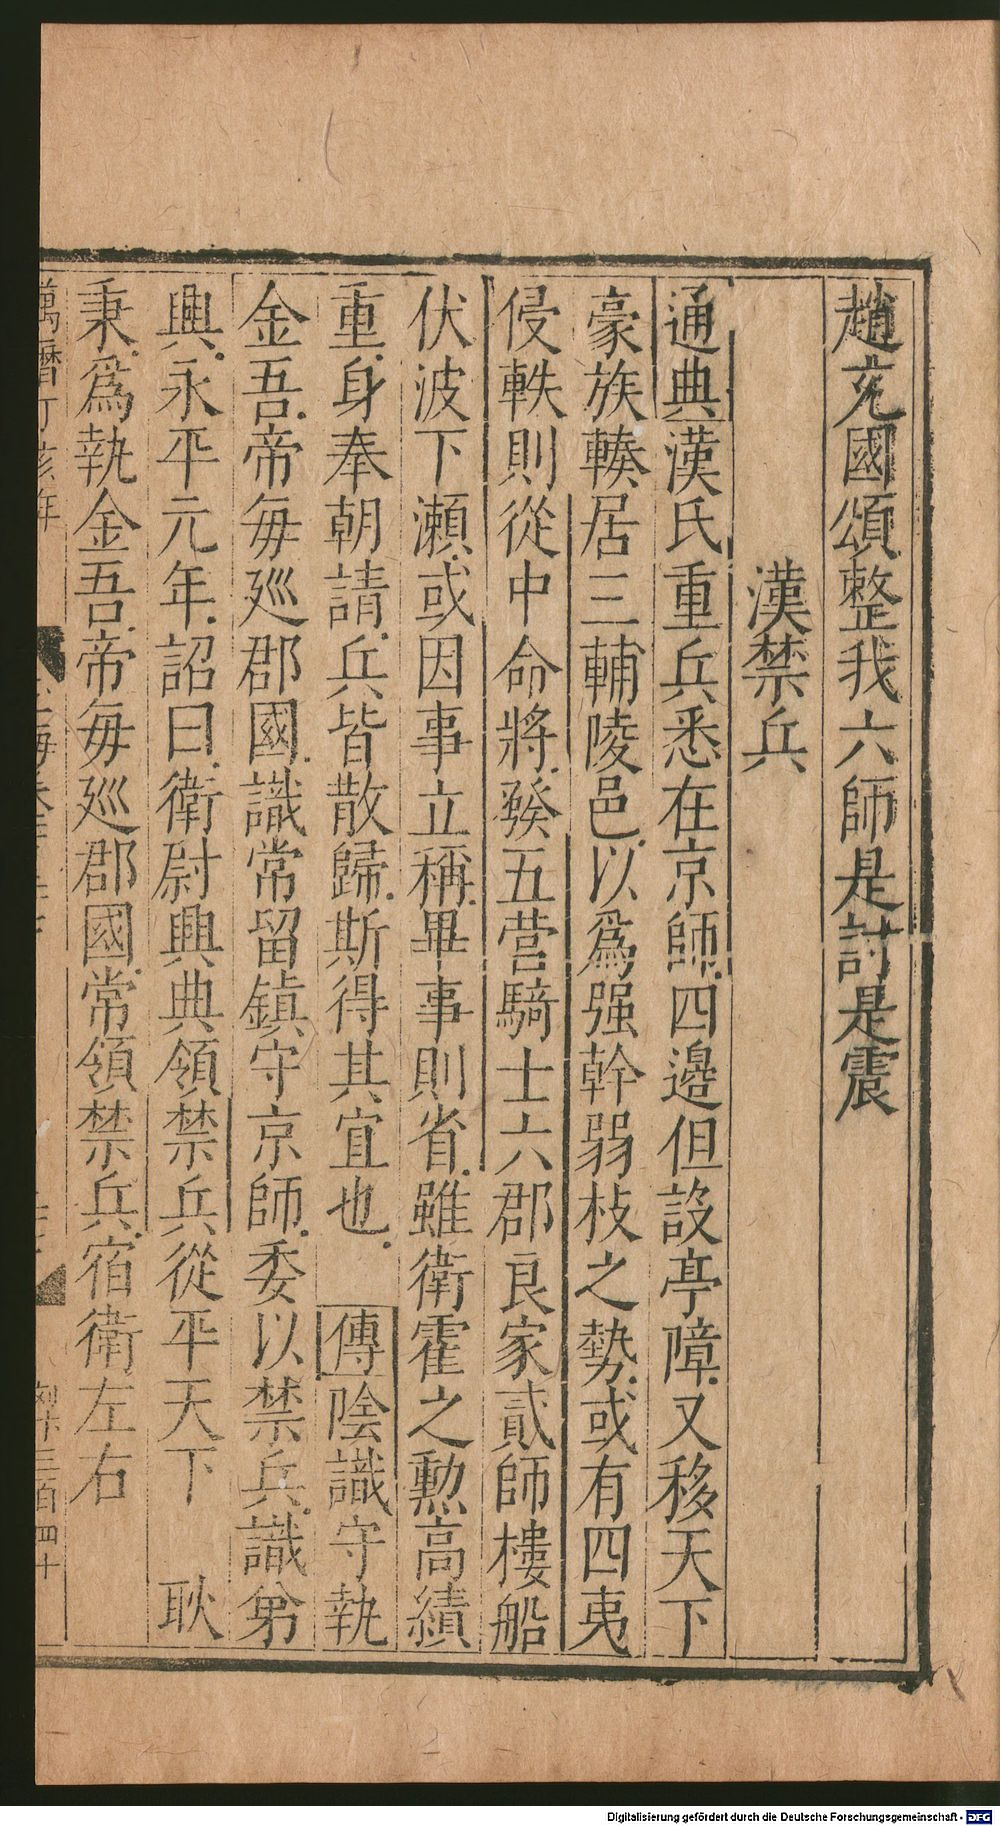 趙充國頌整我六師是討是震
漢禁兵
通典漢氏重兵悉在京師四邊但設亭障又移天下
豪族輳居三輔陵邑以為强幹弱枝之勢或有四夷
侵軼則從中命將發五营騎士六郡良家貳師樓船
伏波下瀨或因事立稱畢事則省雖衛霍之勲高績
重身奉朝請兵皆散歸斯得其宜也 傳陰識守執
金吾帝每廵郡國識常留鎮守京師委以禁兵識弟
興永平元年詔曰衛尉興典領禁兵從平天下 耿
秉為執金吾帝每廵郡國常領禁兵宿衛左右
萬曆丁亥年
海卷
三百四十
Digitalisierung gefördert durch die Deutsche Forschungsgemeinschaft - DFG